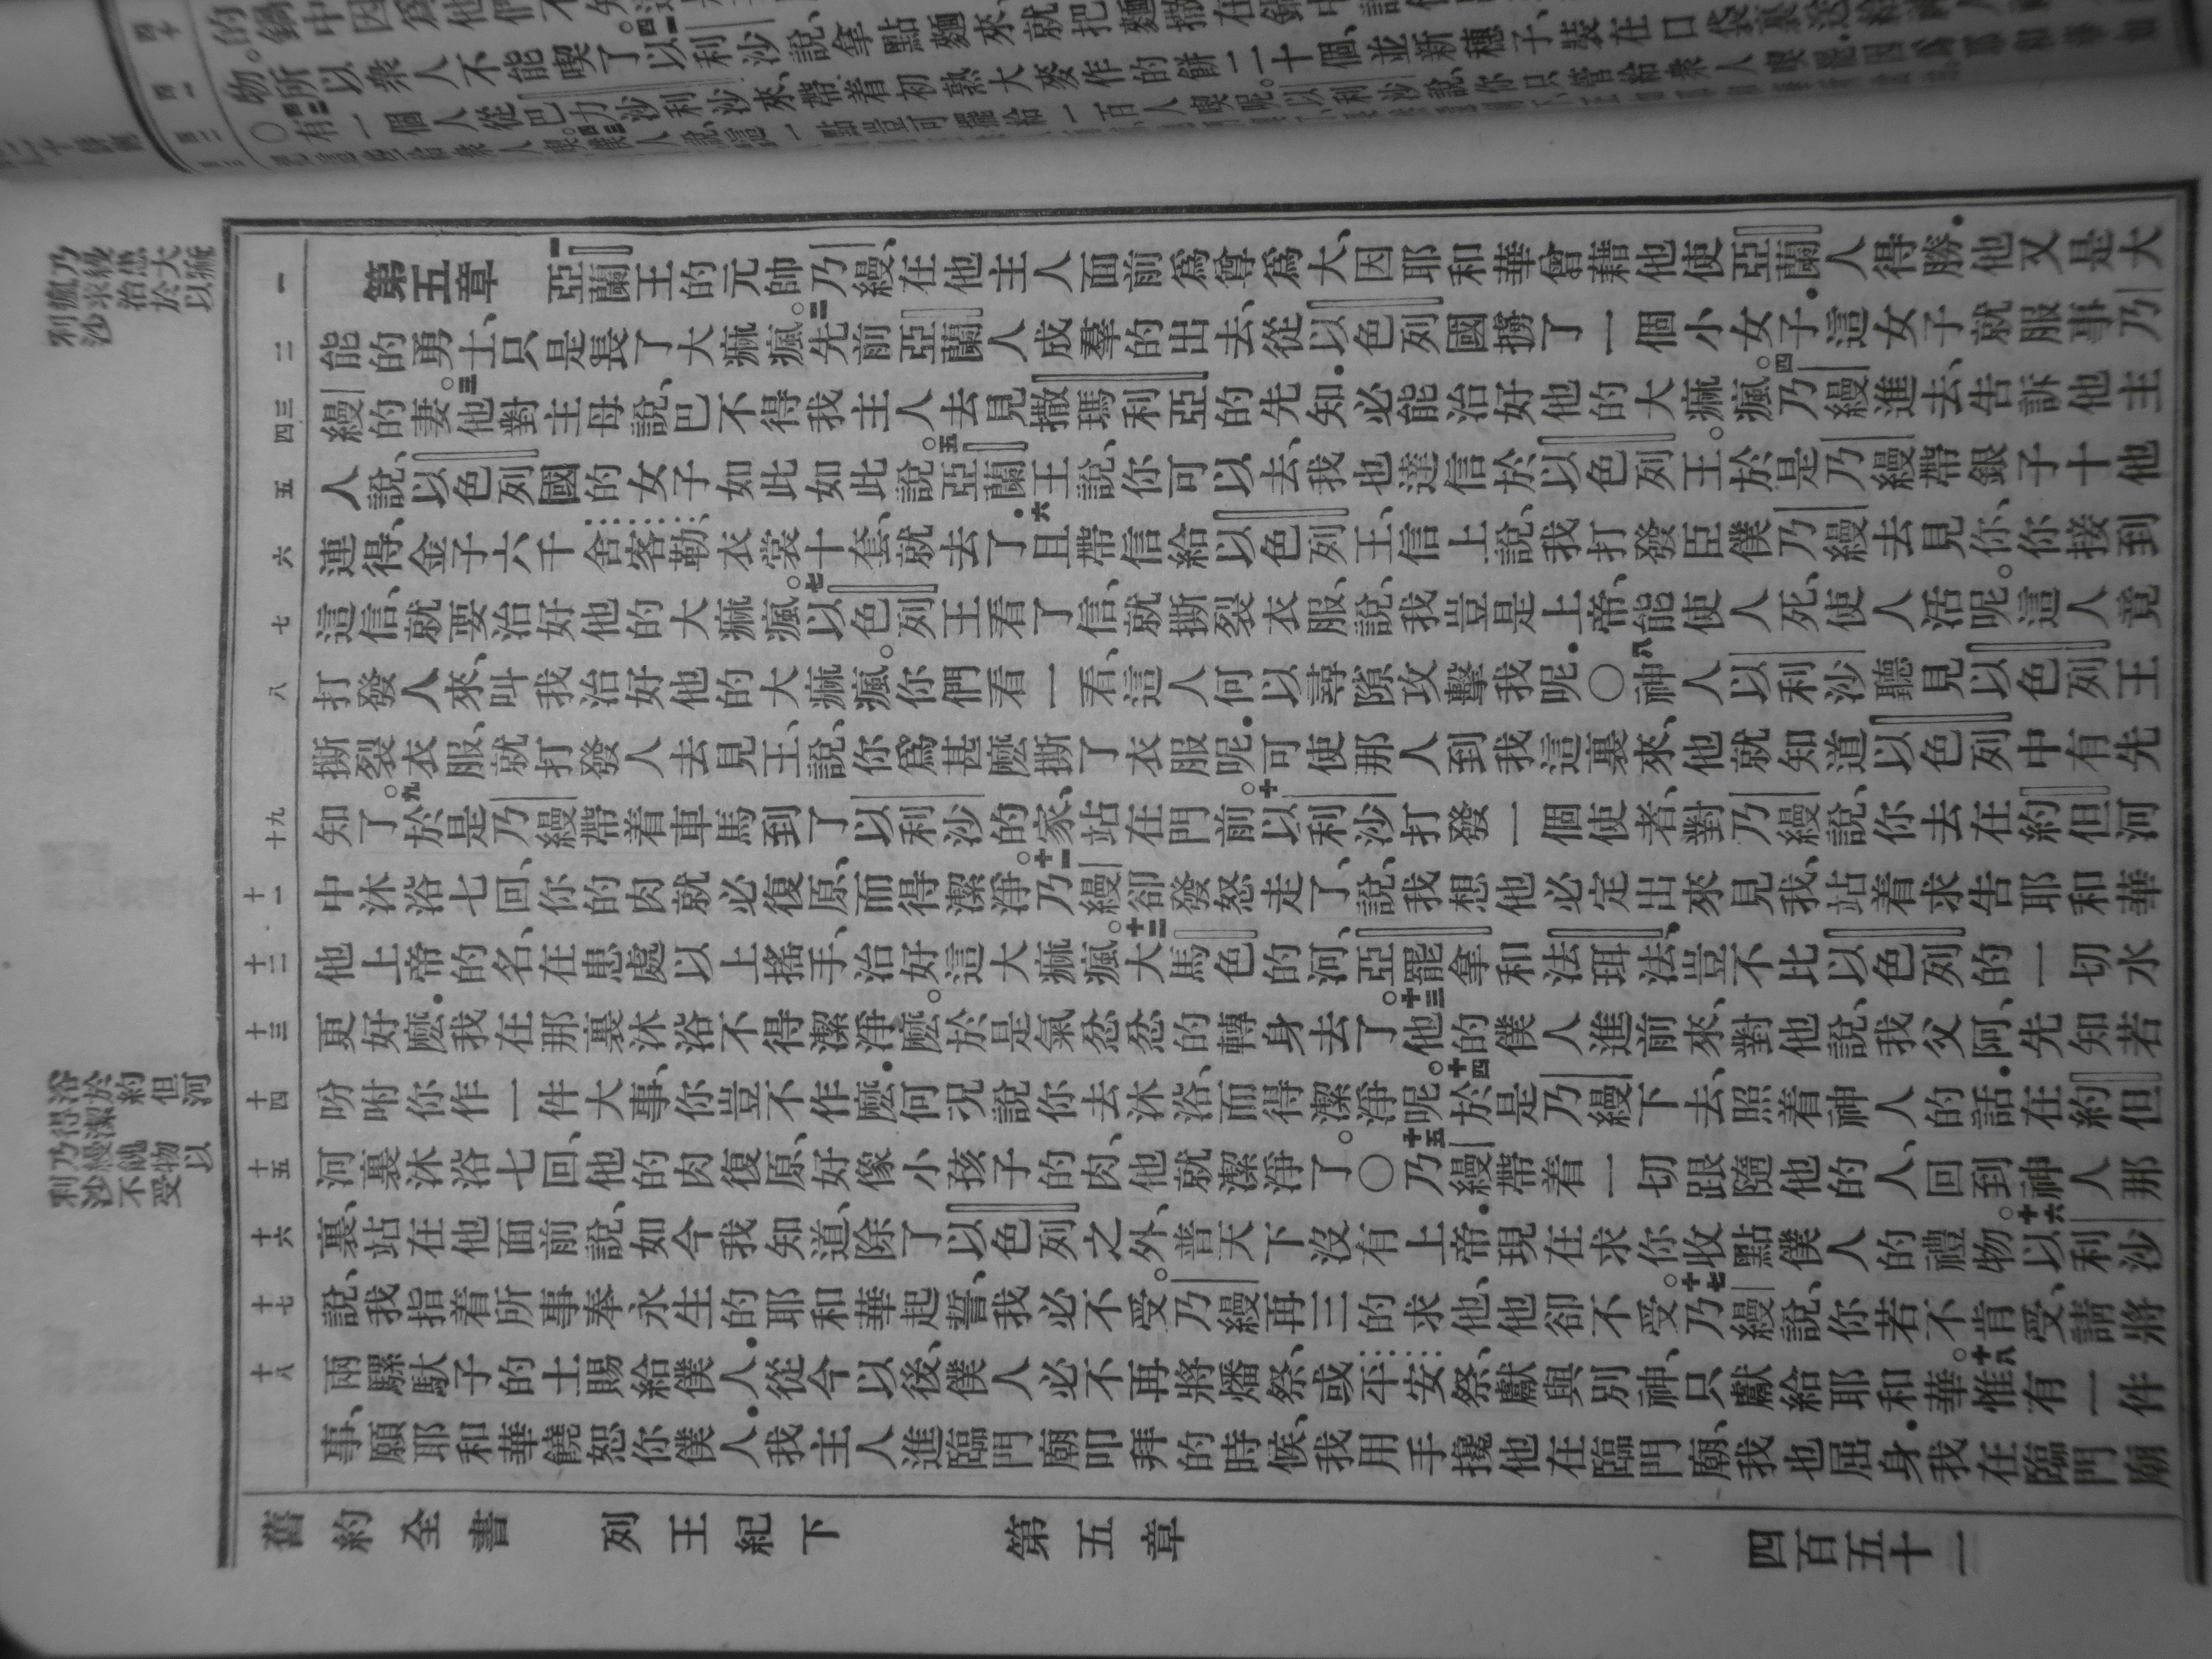 的鍋中因爲他們不
物所以衆人不能喫了四一以利沙說拿點麵來就把麵撒在鍋中
○四二有一個人從巴力沙利沙來、帶着初熟大麥作的餅二十個、並新穗子裝在口袋裏送給
第五章　一亞蘭王的元帥乃縵、在他主人面前爲尊爲大、因耶和華曾藉他使亞蘭人得勝．他又是大
能的勇士、只是長了大痲瘋。二先前亞蘭人成羣的出去、從以色列國擄了一個小女子．這女子就服事乃
縵的妻。三他對主母說、巴不得我主人去見撒瑪利亞的先知．必能治好他的大痲瘋。四乃縵進去、告訴他主
人說、以色列國的女子如此如此說。五亞蘭王說、你可以去、我也達信於以色列王。於是乃縵帶銀子十他
連得、金子六千舍客勒、衣裳十套、就去了．六且帶信給以色列王、信上說、我打發臣僕乃縵去見你、你接到
這信、就要治好他的大痲瘋。七以色列王看了信、就撕裂衣服、說、我豈是上帝、能使人死、使人活呢。這人竟
打發人來、叫我治好他的大痲瘋。你們看一看、這人何以尋隙攻擊我呢．○八神人以利沙聽見以色列王
撕裂衣服、就打發人去見王、說、你爲甚麼撕了衣服呢．可使那人到我這裏來、他就知道以色列中有先
知了。九於是乃縵帶着車馬到了以利沙的家、站在門前。十以利沙打發一個使者、對乃縵說、你去在約但河
中沐浴七回、你的肉就必復原、而得潔淨。十一乃縵卻發怒走了、說、我想他必定出來見我、站着求告耶和華
他上帝的名、在患處以上搖手、治好這大痲瘋。十二大馬色的河、亞罷拿和法珥法、豈不比以色列的一切水
更好麼．我在那裏沐浴不得潔淨麼。於是氣忿忿的轉身去了。十三他的僕人進前來、對他說、我父阿、先知若
吩咐你作一件大事、你豈不作麼．何況說你去沐浴、而得潔淨呢。十四於是乃縵下去、照着神人的話．在約但
河裏沐浴七回、他的肉復原、好像小孩子的肉、他就潔淨了。○十五乃縵帶着一切跟隨他的人、回到神人那
裏、站在他面前說、如今我知道、除了以色列之外、普天下沒有上帝．現在求你收點僕人的禮物。十六以利沙
說、我指着所事奉永生的耶和華起誓、我必不受。乃縵再三的求他、他卻不受。十七乃縵說、你若不肯受、請將
兩騾馱子的土賜給僕人．從今以後、僕人必不再將燔祭、或平安祭、獻與別神、只獻給耶和華。十八惟有一件
事、願耶和華饒恕你僕人．我主人進臨門廟叩拜的時候、我用手攙他在臨門廟、我也屈身．我在臨門廟
乃縵患大痲
瘋求治於以
利沙
浴於約但河
得潔
乃縵餽物以
利沙不受
一
二
三
四
五
六
七
八
九
十
十一
十二
十三
十四
十五
十六
十七
十八
舊約全書　列王紀下　第五章　四百五十一